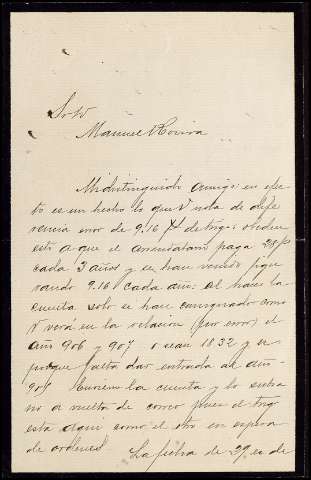 Sr D
Manuel Rovira
Mi distinguido amigo en efec
to es un hecho lo que V nota de que
venia error de 9.16 de trigo: obedece
esto a que el arrendatario paga 28
cada 3 años y se han venido figu
rando 9.16 cada año: al hacer la
cuenta solo se han consignado como
V verá en la relacion (por error) el
año 906 y 907 o sean 18.32 y es
porque falta dar entrada al año
908. la cuenta y lo
no a vuelta de correo pues el trigo
esta aqui como el otro en espera
de ordenes.
La fecha de 29 es de